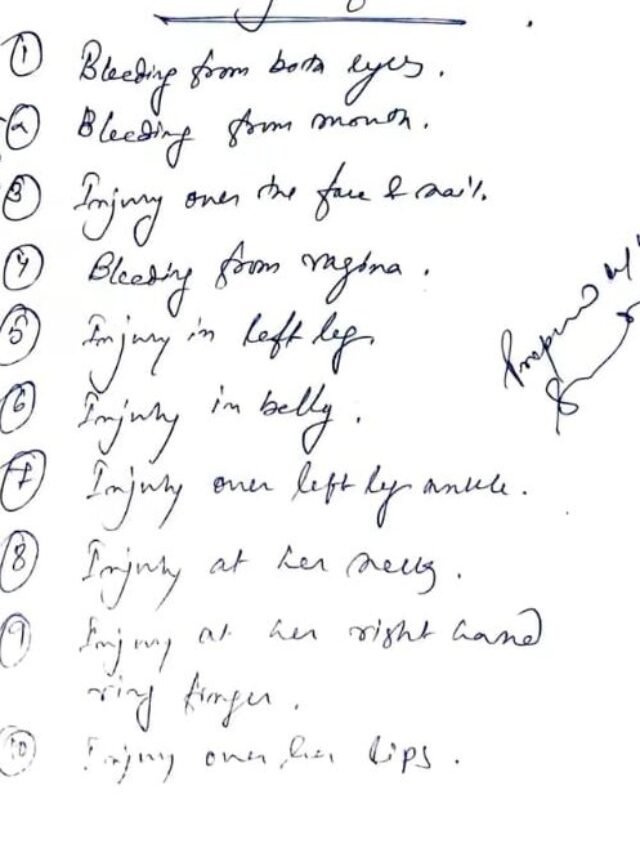 ① Bleeding from both eyes.
② Bleeding from mouth.
③ Injury over the face & nail.
④ Bleeding from vagina.
⑤ Injury in left leg
⑥ Injury in belly.
⑦ Injury over left leg ankle.
⑧ Injury at her neck.
⑨ Injury at her right hand
ring finger.
⑩ Injury over her lips.
Prepared